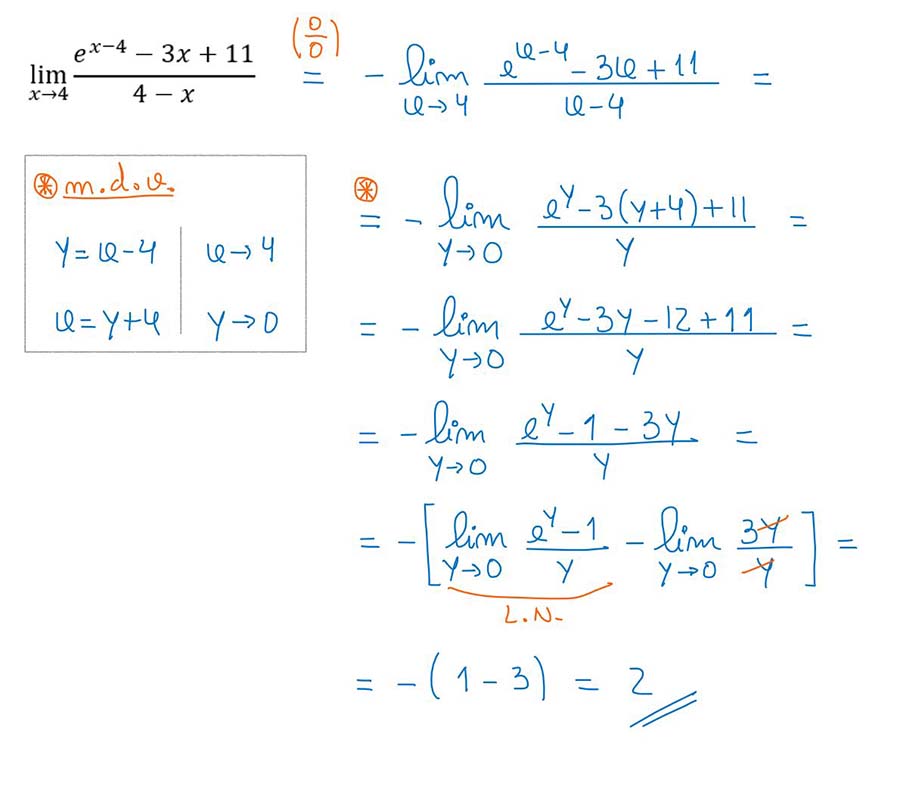 lim x→4 (e^(x−4) − 3x + 11)/(4 − x) (0/0) = − lim x→4 (e^(x−4) − 3x + 11)/(x−4) =
⊛ m.d.v.
y = x−4 | x→4
x = y+4 | y→0
⊛ = − lim y→0 (e^y − 3(y+4) + 11)/y =
= − lim y→0 (e^y − 3y − 12 + 11)/y =
= − lim y→0 (e^y − 1 − 3y)/y =
= −[ lim y→0 (e^y − 1)/y − lim y→0 3y/y ] =
L.N.
= −(1 − 3) = 2